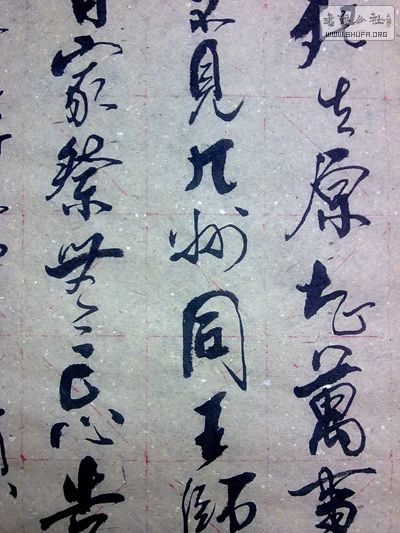 死去原知萬事
不見九州同王師
日家祭無忘告
WWW.SHUFA.ORG